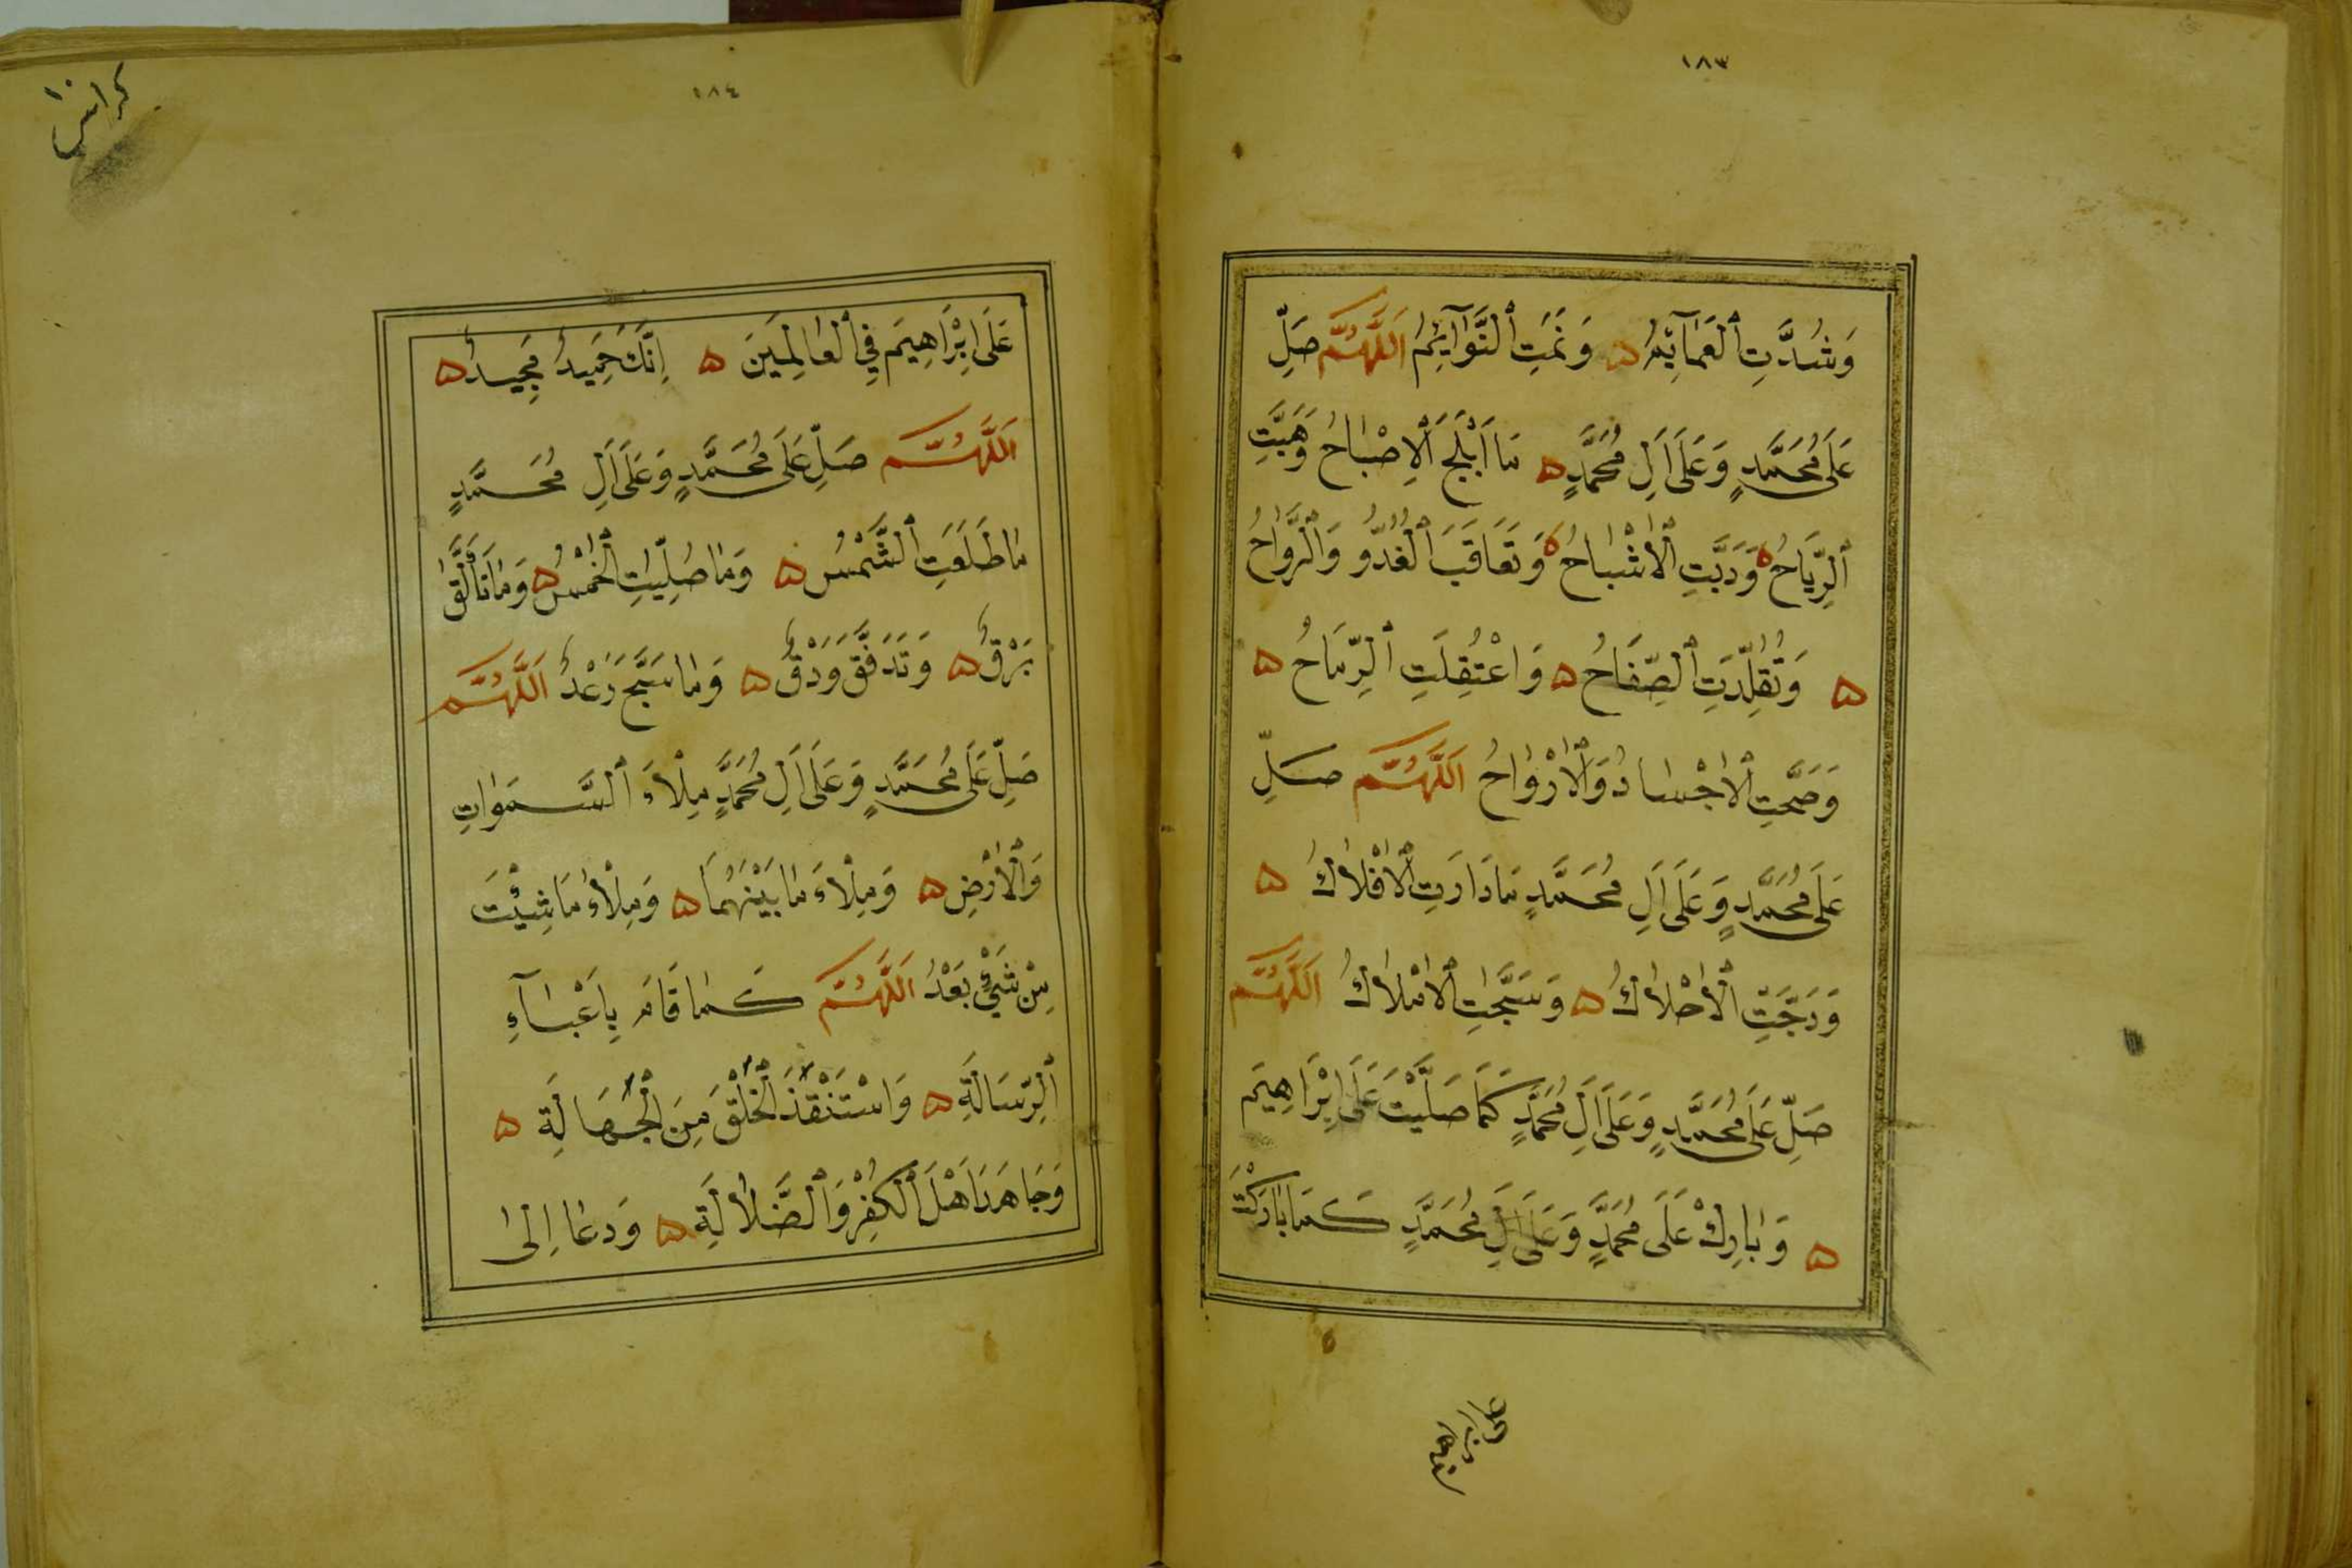 ١٨٣
وَشُدَّتِ ٱلْعَمَآئِمُ ۵ وَنَمَتِ ٱلنَّوَآئِمُ اَللّٰهُمَّ صَلِّ
عَلَى مُحَمَّدٍ وَعَلَى اَلِ مُحَمَّدٍ ۵ مَا اَبْلَجَ ٱلْاِصْبَاحُ وَهَبَّتِ
ٱلرِّيَاحُ ۵ وَدَبَّتِ ٱلْاَشْبَاحُ ۵ وَتَعَاقَبَ ٱلْغُدُوُّ وَٱلرَّوَاحُ
۵ وَتُقُلِّدَتِ ٱلصِّفَاحُ ۵ وَاعْتُقِلَتِ ٱلرِّمَاحُ ۵
وَصَحَّتِ ٱلْاَجْسَادُ وَٱلْاَرْوَاحُ اَللّٰهُمَّ صَلِّ
عَلَى مُحَمَّدٍ وَعَلَى اَلِ مُحَمَّدٍ مَا دَارَتِ ٱلْاَفْلَاكُ ۵
وَدَجَّتِ ٱلْاَحْلَاكُ ۵ وَسَبَّحَتِ ٱلْاَمْلَاكُ اَللّٰهُمَّ
صَلِّ عَلَى مُحَمَّدٍ وَعَلَى اَلِ مُحَمَّدٍ كَمَا صَلَّيْتَ عَلَى اِبْرَاهِيمَ
۵ وَبَارِكْ عَلَى مُحَمَّدٍ وَعَلَى اَلِ مُحَمَّدٍ كَمَا بَارَكْتَ
على ابراهيم
١٨٤
عَلَى اِبْرَاهِيمَ فِي ٱلْعَالَمِينَ ۵ اِنَّكَ حَمِيدٌ مَجِيدٌ ۵
اَللّٰهُمَّ صَلِّ عَلَى مُحَمَّدٍ وَعَلَى اَلِ مُحَمَّدٍ
مَا طَلَعَتِ ٱلشَّمْسُ ۵ وَمَا صُلِّيَتِ ٱلْخَمْسُ ۵ وَمَا تَأَلَّقَ
بَرْقٌ ۵ وَتَدَفَّقَ وَدْقٌ ۵ وَمَا سَبَّحَ رَعْدٌ اَللّٰهُمَّ
صَلِّ عَلَى مُحَمَّدٍ وَعَلَى اَلِ مُحَمَّدٍ مِلْأَ ٱلسَّمَوَاتِ
وَٱلْاَرْضِ ۵ وَمِلْأَ مَا بَيْنَهُمَا ۵ وَمِلْأَ مَا شِئْتَ
مِنْ شَيْءٍ بَعْدُ اَللّٰهُمَّ كَمَا قَامَ بِاَعْبَآءِ
ٱلرِّسَالَةِ ۵ وَاسْتَنْقَذَ ٱلْخَلْقَ مِنَ ٱلْجَهَالَةِ ۵
وَجَاهَدَ اَهْلَ ٱلْكُفْرِ وَٱلضَّلَالَةِ ۵ وَدَعَا اِلَى